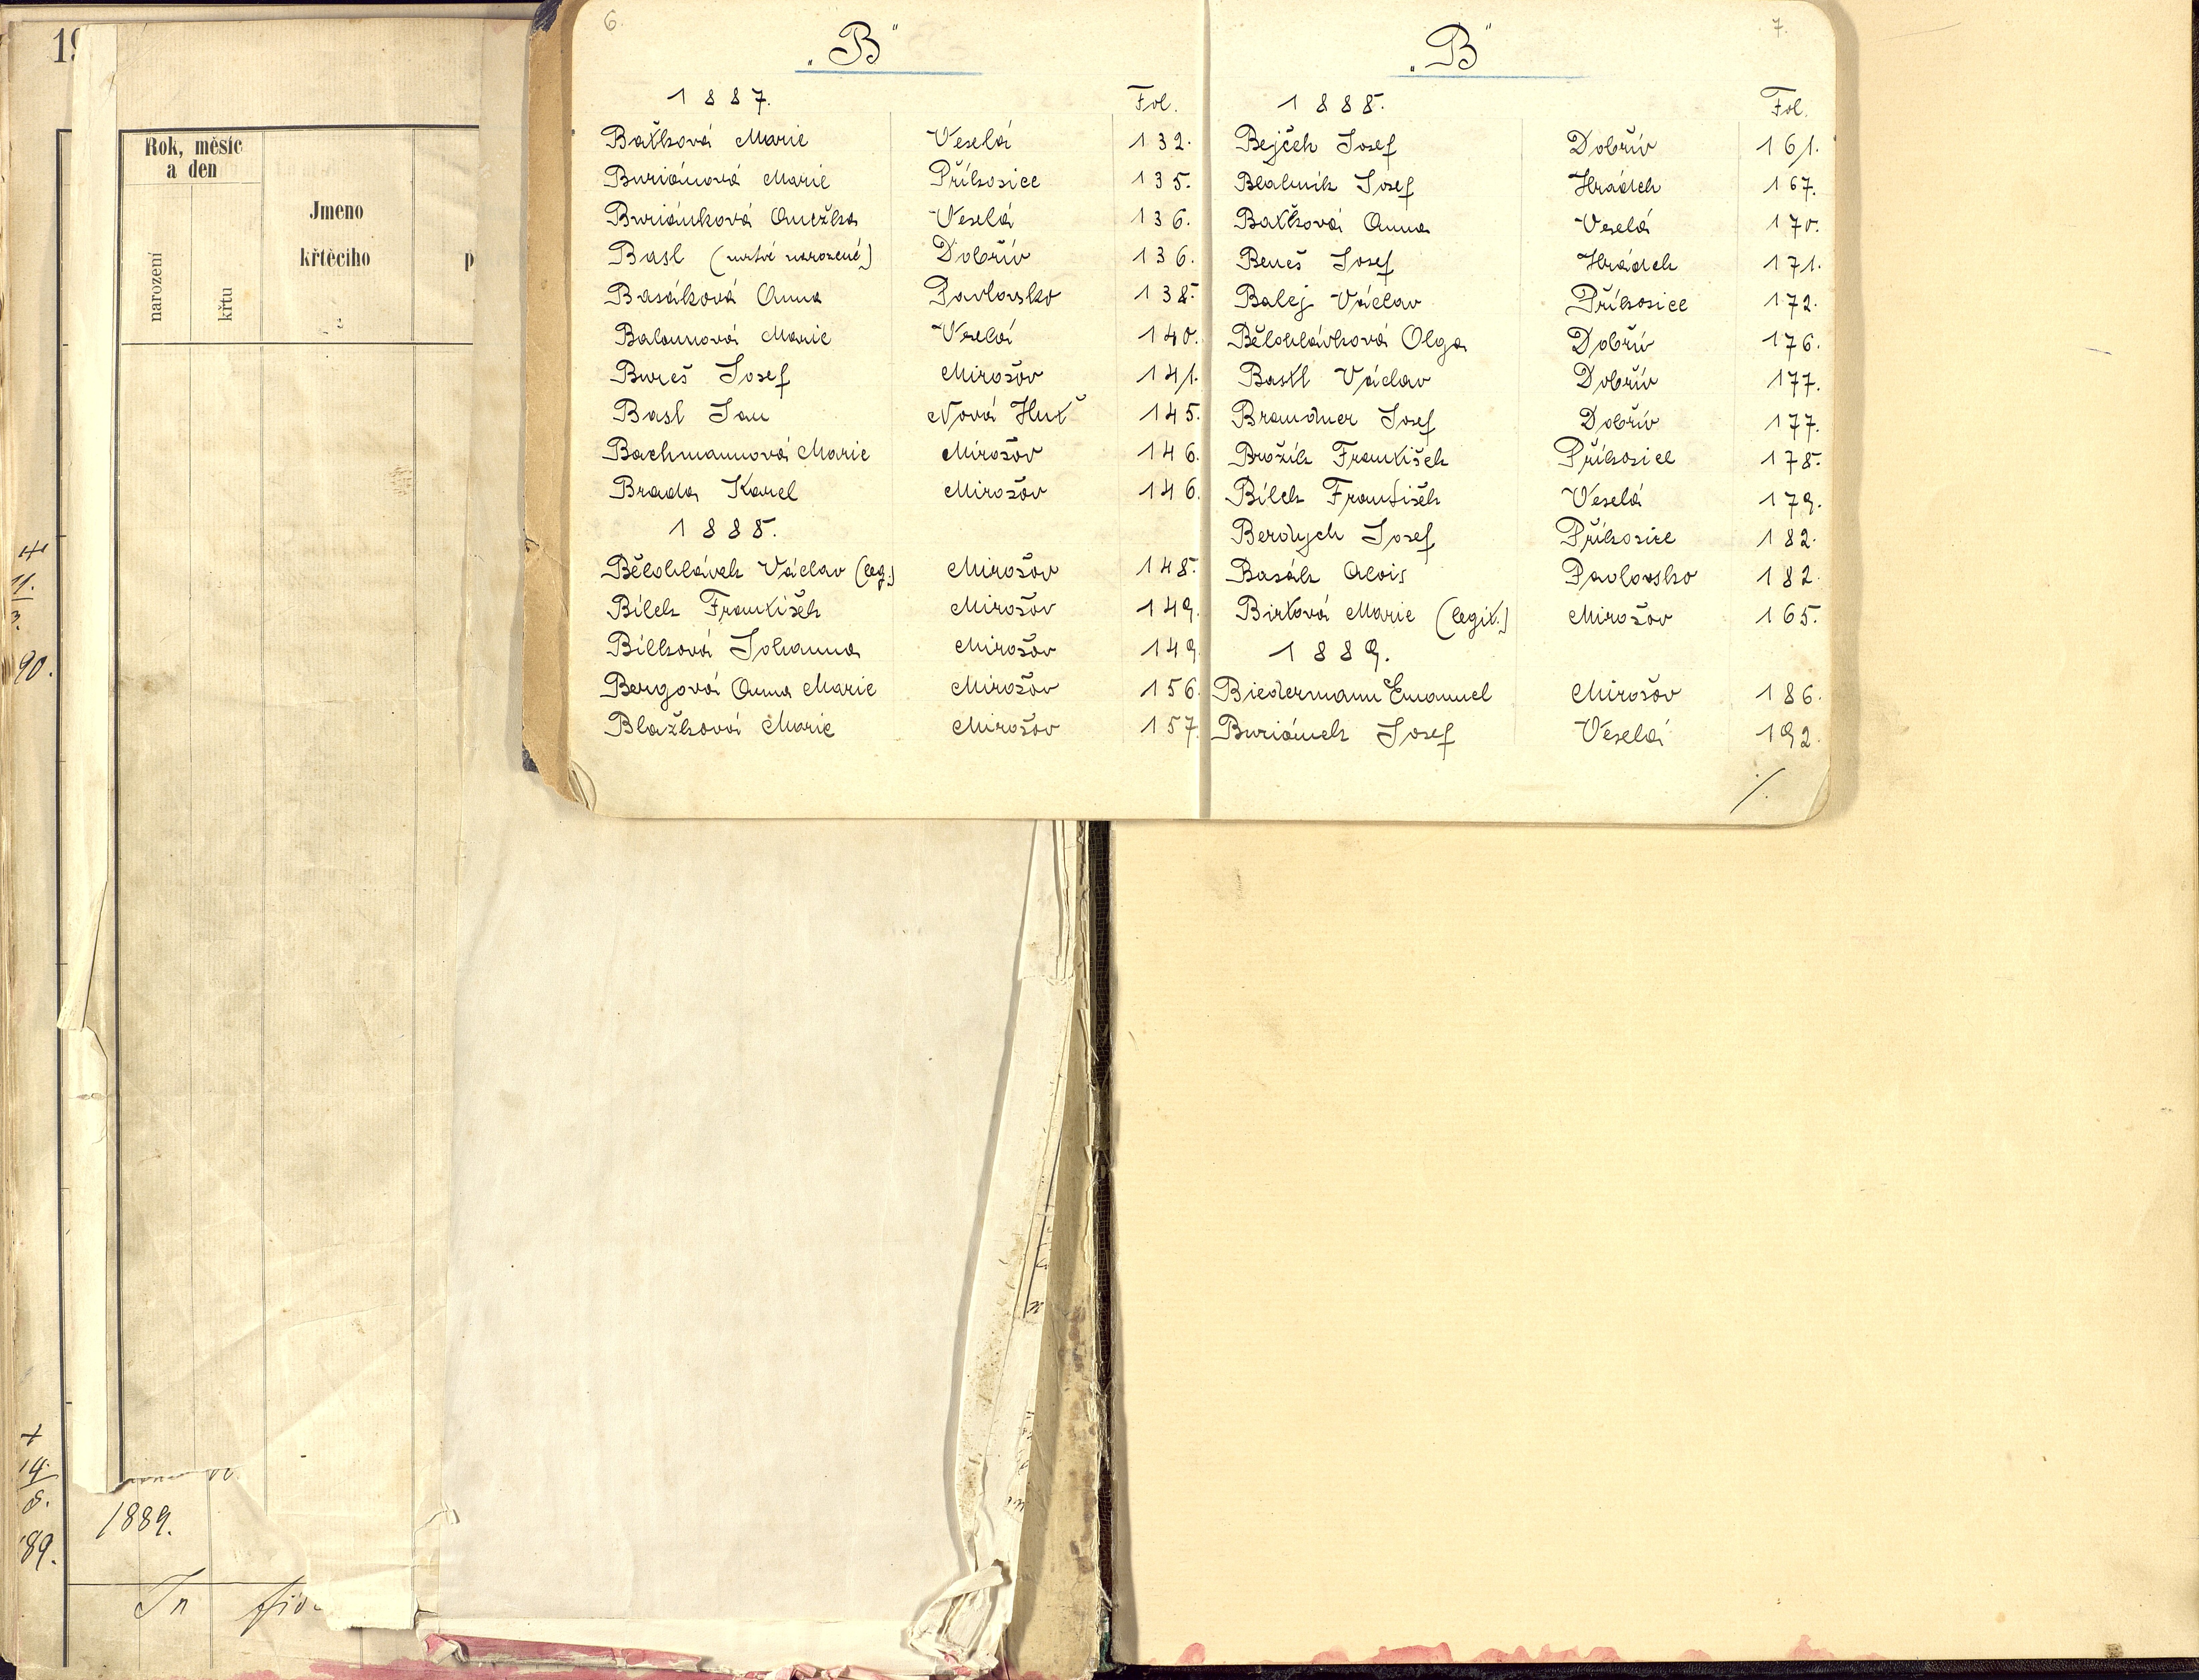 6.
„B"
1887. Fol.
Baťková Marie Veselá 132.
Buriánová Marie Příkosice 135.
Buriánková Anežka Veselá 136.
Basl (mrtvě narozené) Dobřív 136.
Basáková Anna Pavlovsko 138.
Balounová Marie Veselá 140.
Bureš Josef Mirošov 141.
Basl Jan Nová Huť 145.
Bachmannová Marie Mirošov 146.
Brada Karel Mirošov 146.
1888.
Bělohlávek Václav (leg.) Mirošov 148.
Bílek František Mirošov 149.
Bílková Johanna Mirošov 149
Bergová Anna Marie Mirošov 156
Blažková Marie Mirošov 157.
7.
„B"
1888. Fol.
Bejček Josef Dobřív 161.
Blahník Josef Hrádek 167.
Baťková Anna Veselá 170.
Beneš Josef Hrádek 171.
Balej Václav Příkosice 172.
Bělohlávková Olga Dobřív 176.
Bastl Václav Dobřív 177.
Brandner Josef Dobřív 177.
Brožík František Příkosice 178.
Bílek František Veselá 179.
Berdych Josef Příkosice 182.
Basák Alois Pavlovsko 182.
Birková Marie (legit.) Mirošov 165.
1889.
Biedermann Emanuel Mirošov 186.
Buriánek Josef Veselá 192.
./.
19
Rok, měsíc
a den
narození
křtu
Jmeno
křtěcího
p
11.
3.
90.
14.
8.
89.
1889.
In